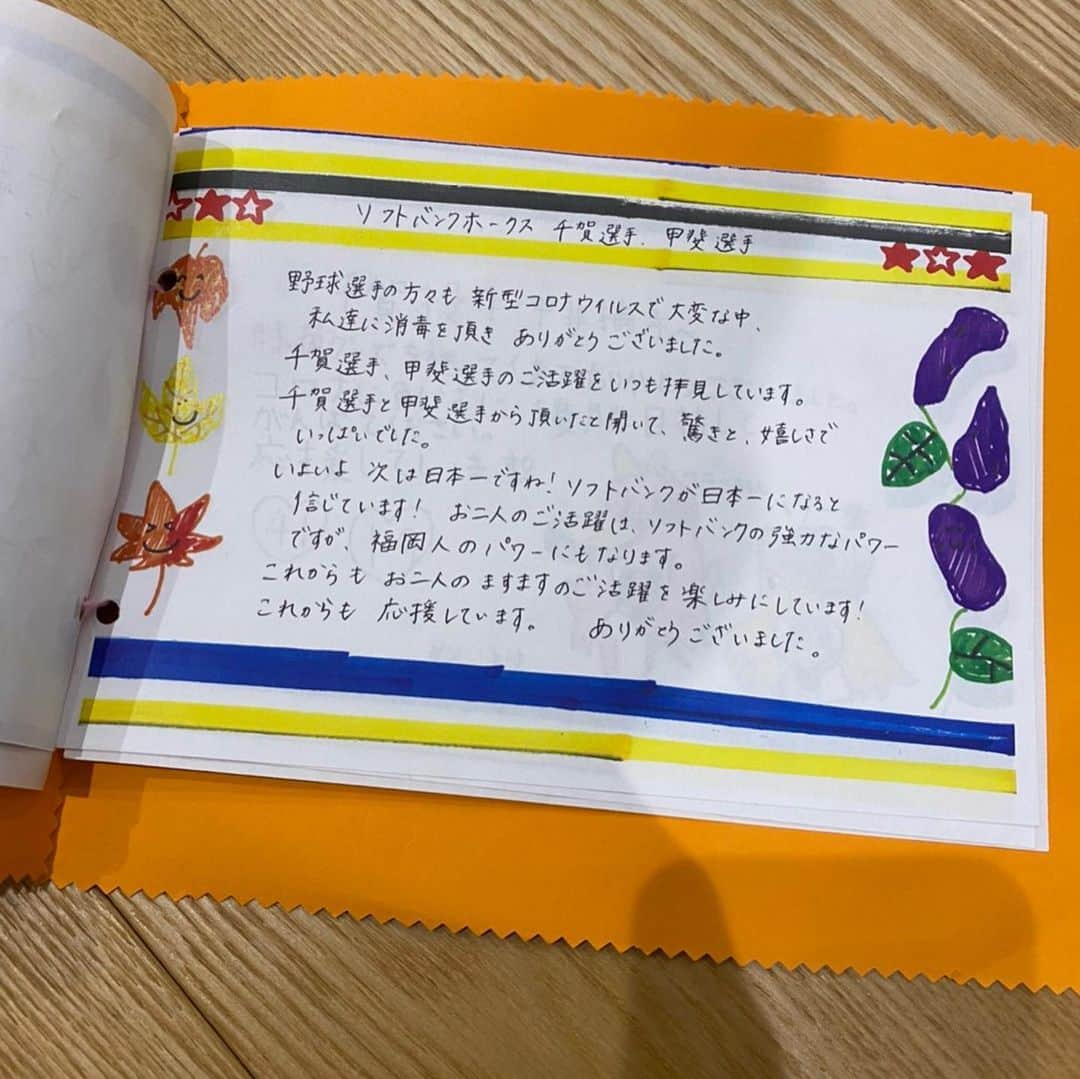 ソフトバンクホークス 千賀選手、甲斐選手
野球選手の方々も 新型コロナウイルスで大変な中、
私達に消毒を頂き ありがとうございました。
千賀選手、甲斐選手のご活躍をいつも拝見しています。
千賀選手と甲斐選手から頂いたと聞いて、驚きと、嬉しさで
いっぱいでした。
いよいよ 次は日本一ですね! ソフトバンクが日本一になると
信じています! お二人のご活躍は、ソフトバンクの強力なパワー
ですが、福岡人のパワーにもなります。
これからも お二人のますますのご活躍を楽しみにしています!
これからも 応援しています。 ありがとうございました。